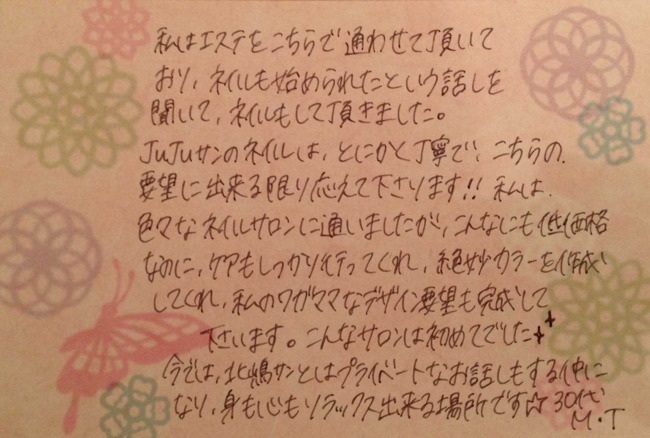 私はエステをこちらで通わせて頂いて
おり、ネイルも始められたという話しを
聞いて、ネイルもして頂きました。
JuJuサンのネイルは、とにかく丁寧で、こちらの、
要望に出来る限り応えて下さります!! 私は、
色々なネイルサロンに通いましたが、こんなにも低価格
なのに、ケアもしっかり行ってくれ、絶妙カラーを作成
してくれ、私のワガママなデザイン要望も完成して
下さいます。こんなサロンは初めてでした++
今では、北嶋サンとはプライベートなお話しもする仲に
なり、身も心もリラックス出来る場所です☆ 30代
M・T